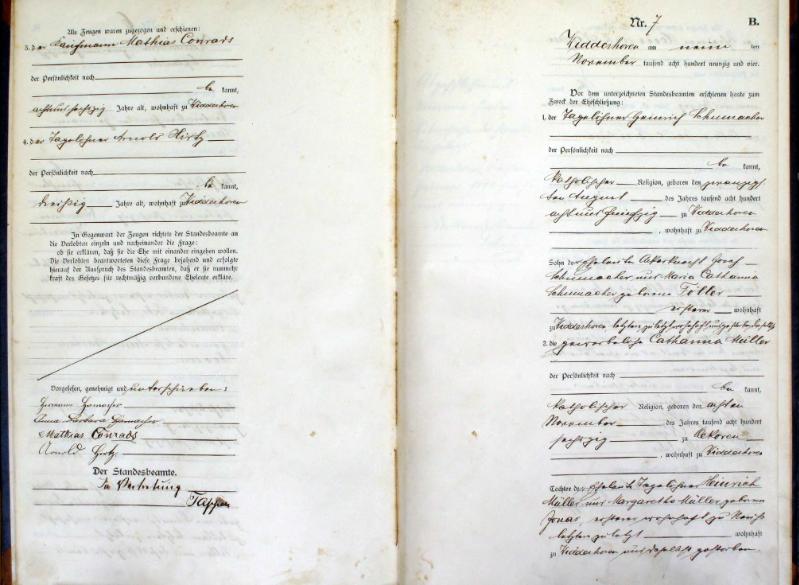 Als Zeugen waren zugezogen und erschienen:
3. der Kaufmann Mathias Conrads
der Persönlichkeit nach
be kannt,
achtundsechszig Jahre alt, wohnhaft zu Widdeshoven
4. der Tagelöhner Arnold Hirtz
der Persönlichkeit nach
be kannt,
dreißig Jahre alt, wohnhaft zu Widdeshoven
In Gegenwart der Zeugen richtete der Standesbeamte an
die Verlobten einzeln und nacheinander die Frage:
ob sie erklären, daß sie die Ehe mit einander eingehen wollen.
Die Verlobten beantworteten diese Frage bejahend und erfolgte
hierauf der Ausspruch des Standesbeamten, daß er sie nunmehr
kraft des Gesetzes für rechtmäßig verbundene Eheleute erkläre.
Vorgelesen, genehmigt und unterschrieben:
Hermann
Anna Barbara
Mathias Conrads
Arnold Hirtz
Der Standesbeamte.
In Vertretung
Tappen
Nr. 7 B.
Widdeshoven am neun ten
November tausend acht hundert neunzig und vier.
Vor dem unterzeichneten Standesbeamten erschienen heute zum
Zweck der Eheschließung:
1. der Tagelöhner Heinrich Schumacher
der Persönlichkeit nach
be kannt,
katholischer Religion, geboren den zwanzigs
ten August des Jahres tausend acht hundert
achtundfünfzig zu Widdeshoven
, wohnhaft zu Widdeshoven
Sohn der Eheleute Ackerknecht Josef
Schumacher und Maria Catharina
Schumacher geborene Töller
ersterer wohnhaft
zu Widdeshoven letztere zuletzt
2. die gewerbelose Catharina Müller
der Persönlichkeit nach
be kannt,
katholischer Religion, geboren den achten
November des Jahres tausend acht hundert
sechszig zu Oekoven
, wohnhaft zu Widdeshoven
Tochter der Eheleute Tagelöhner Heinrich
Müller und Margaretha Müller geborene
Jonas, ersterer wohnhaft zu
letztere zuletzt wohnhaft
zu Widdeshoven und daselbst gestorben.